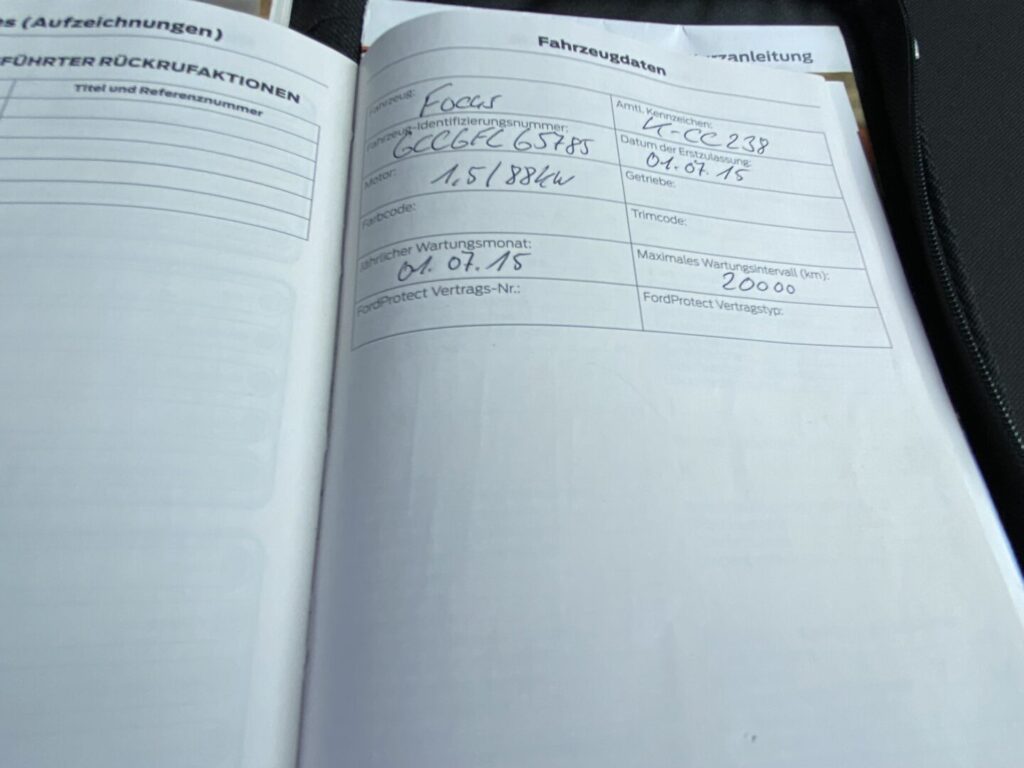 es (Aufzeichnungen)
FÜHRTER RÜCKRUFAKTIONEN
Titel und Referenznummer
rzanleitung
Fahrzeugdaten
Fahrzeug: Focus
Amtl. Kennzeichen: K-CC 238
Fahrzeug-Identifizierungsnummer: GCCGFC65785
Datum der Erstzulassung: 01.07.15
Motor: 1,5/88kw
Getriebe:
Farbcode:
Trimcode:
Jährlicher Wartungsmonat: 01.07.15
Maximales Wartungsintervall (km): 20000
FordProtect Vertrags-Nr.:
FordProtect Vertragstyp: